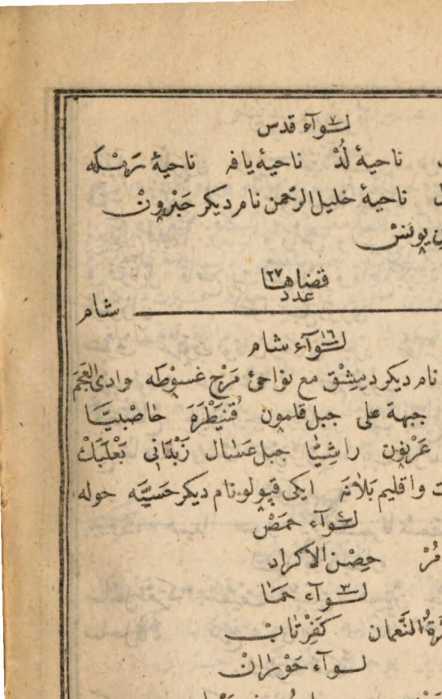 لوآء قدس
ناحيۀ لُدْ ناحيۀ يافه ناحيۀ رَمْلَه
ناحيۀ خليل الرّحمن نام ديكر حَبْرونْ
يونس
قضاها
عدد ٢٧
شام
لوآء شام ١٦
نام ديكر دِمِشْق مع نواحئ مَرْج غسوْطه وادى العَجَم
جبهۀ على جبل قلمون قُنَيْطَرَه حاصْبيّا
عَرْبون راشِيّا جبل عَسّال زَبْدَانى بَعْلَبَكْ
واقليم بَلّانه ايكى قپولو نام ديكر حَسيَّه حوله
لوآء حِمَصْ
حِصْن الاكراد
لوآء حَما ٣
النَّعمان كَفَرْتابْ
لوآء حَوْرانْ